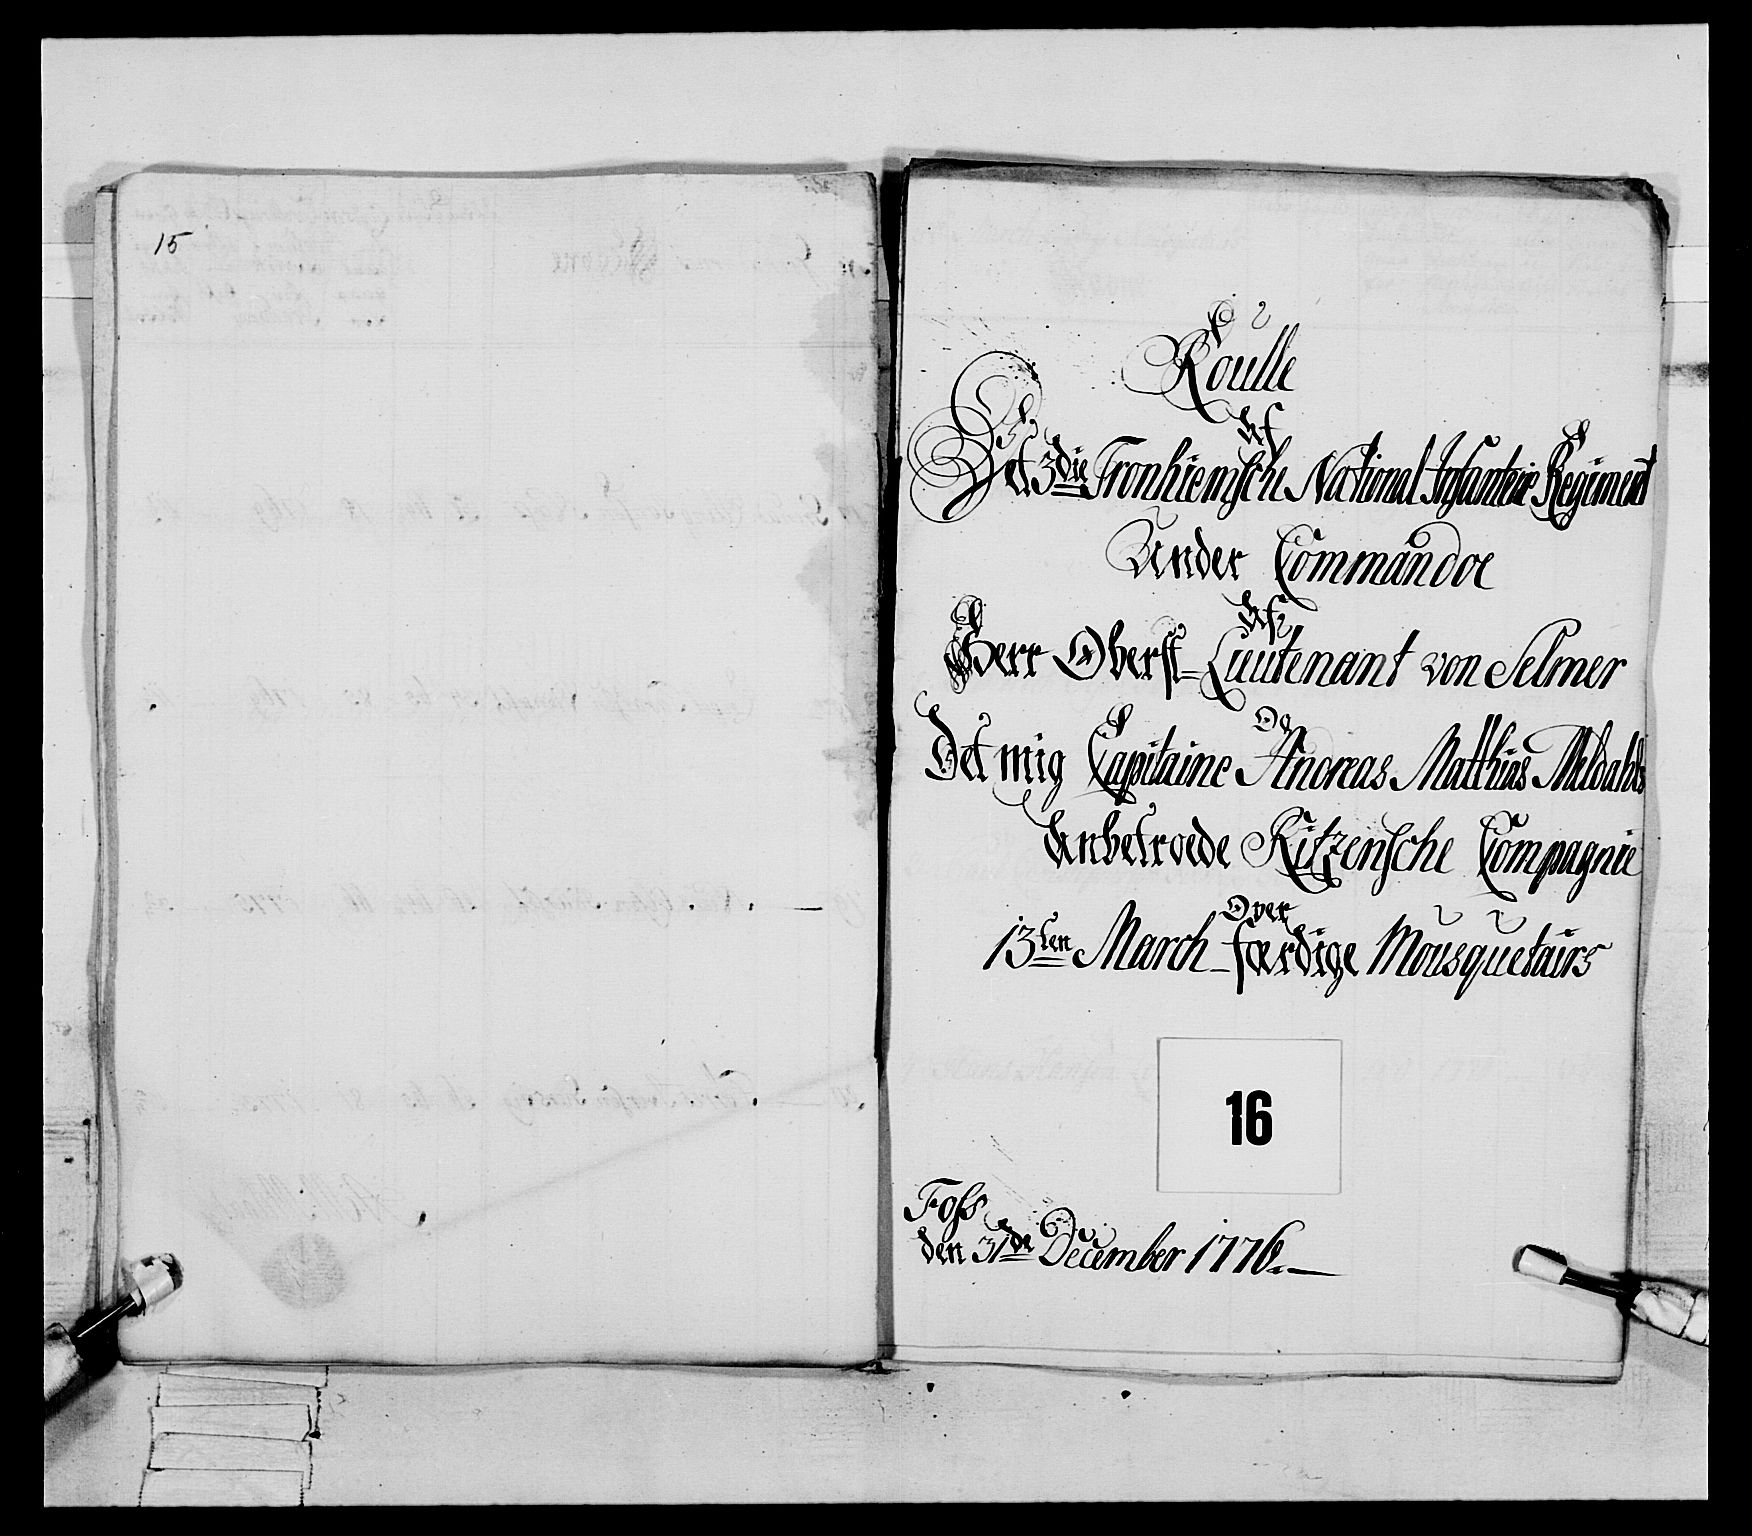 15
Roulle
Af
Det 3die Tronhiemsche National Infanterie Regiment
Under Commandoe
Af
Herr Oberst-Lieutenant von Selmer
Og
Det mig Capitaine Andreas Matthias Meldahls
Anbetroede Ritzensche Compagnie
Over
13ten March-færdige Mousquetairs
16
Foss
den 31de December 1776.